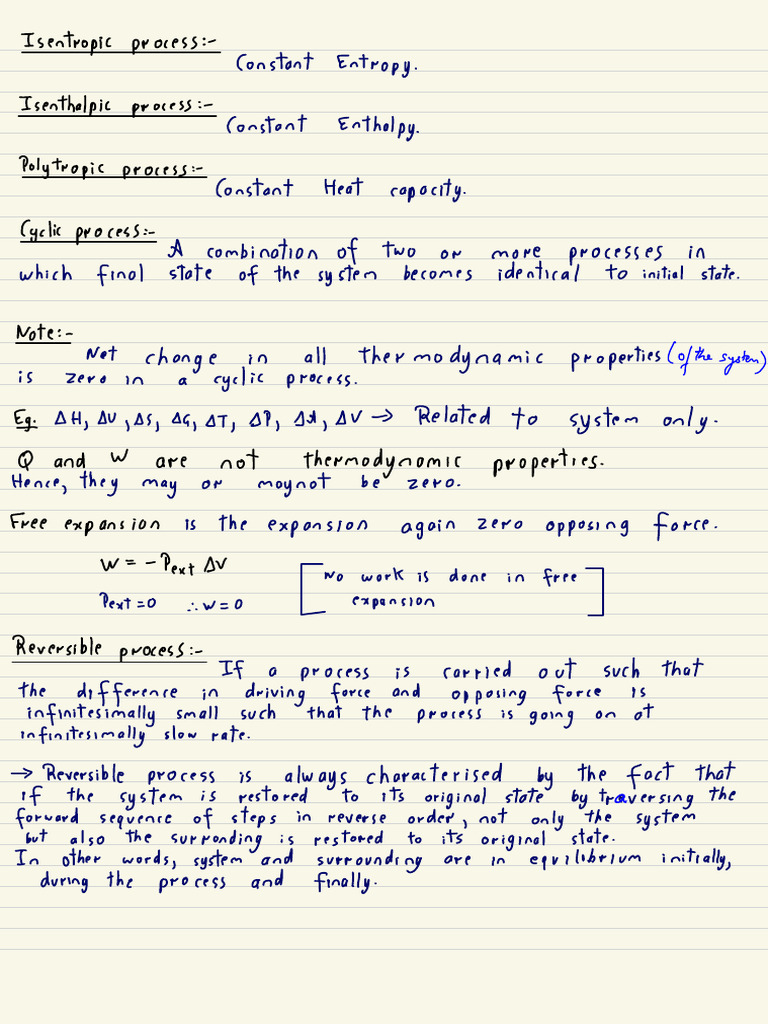 Isentropic process:-
Constant Entropy.
Isenthalpic process:-
Constant Enthalpy.
Polytropic process:-
Constant Heat capacity.
Cyclic process:-
A combination of two or more processes in
which final state of the system becomes identical to initial state.
Note:-
Net change in all thermodynamic properties (of the system)
is zero in a cyclic process.
Eg. ΔH, ΔU, ΔS, ΔG, ΔT, ΔP, ΔA, ΔV → Related to system only.
Q and W are not thermodynamic properties.
Hence, they may or maynot be zero.
Free expansion is the expansion again zero opposing force.
W = - Pext ΔV
Pext = 0 ∴ W = 0
[No work is done in free
expansion]
Reversible process:-
If a process is carried out such that
the difference in driving force and opposing force is
infinitesimally small such that the process is going on at
infinitesimally slow rate.
→ Reversible process is always characterised by the fact that
if the system is restored to its original state by traversing the
forward sequence of steps in reverse order, not only the system
but also the surronding is restored to its original state.
In other words, system and surrounding are in equilibrium initially,
during the process and finally.